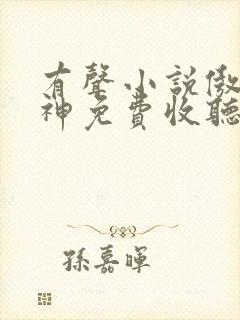 有聲小說傲
神免費收聽
孫嘉暉